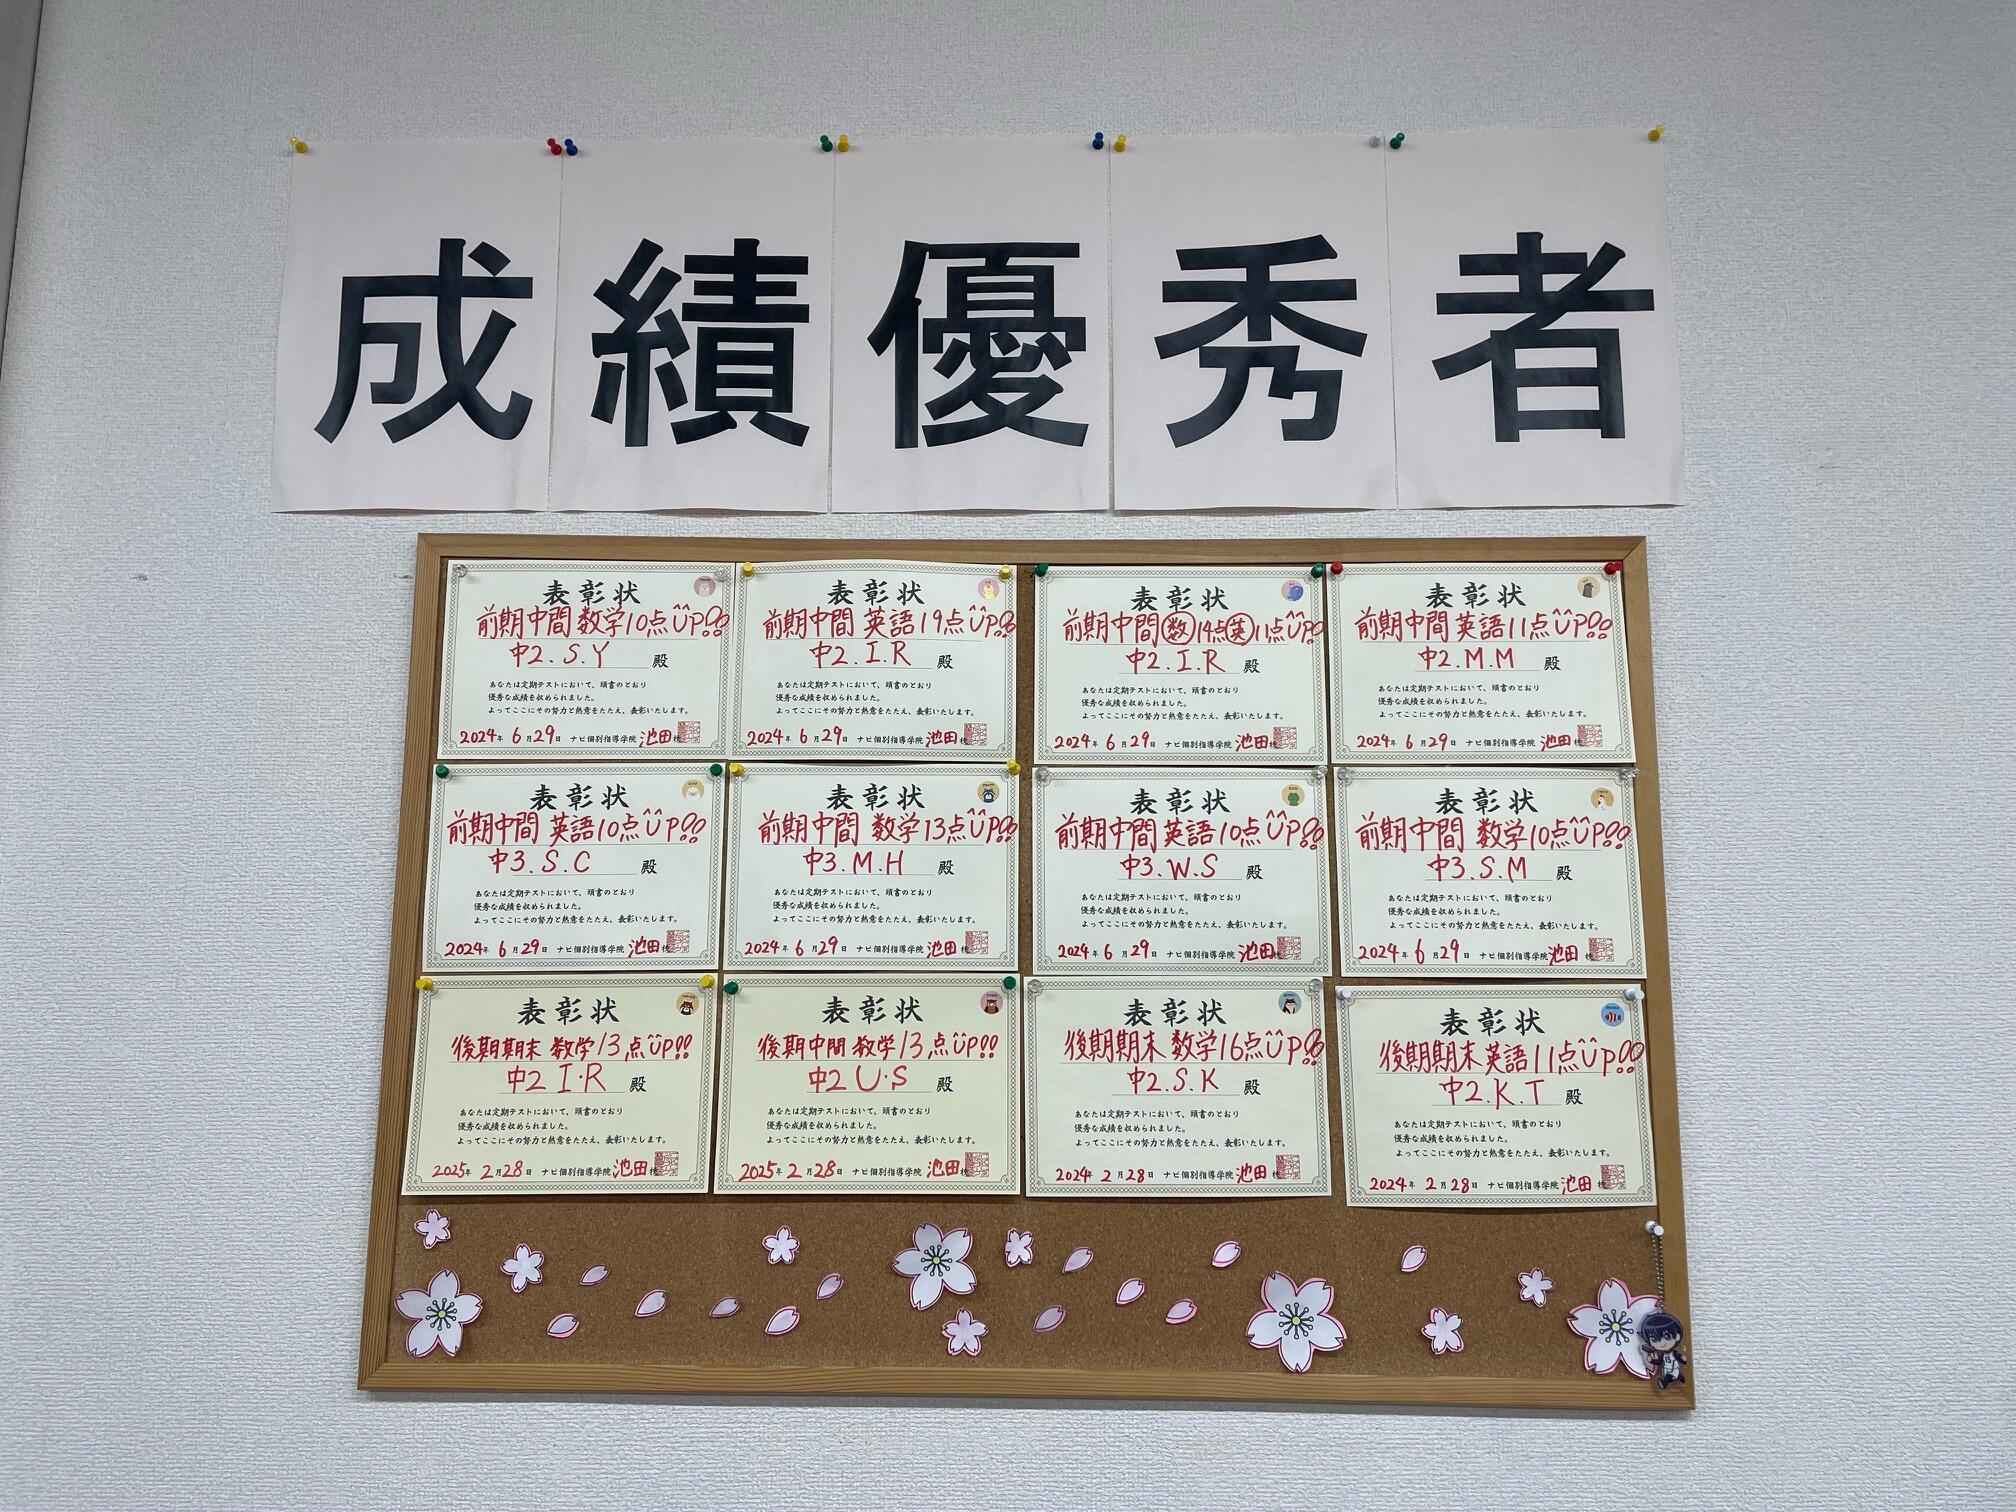 成績優秀者
表彰状
前期中間 数学10点UP!!
中2.S.Y 殿
あなたは定期テストにおいて、頭書のとおり
優秀な成績を収められました。
よってここにその努力と熱意をたたえ、表彰いたします。
2024年 6月29日 ナビ個別指導学院 池田
表彰状
前期中間 英語19点UP!!
中2.I.R 殿
あなたは定期テストにおいて、頭書のとおり
優秀な成績を収められました。
よってここにその努力と熱意をたたえ、表彰いたします。
2024年 6月29日 ナビ個別指導学院 池田
表彰状
前期中間 数14点 英11点UP!!
中2.I.R 殿
あなたは定期テストにおいて、頭書のとおり
優秀な成績を収められました。
よってここにその努力と熱意をたたえ、表彰いたします。
2024年 6月29日 ナビ個別指導学院 池田
表彰状
前期中間 英語11点UP!!
中2.M.M 殿
あなたは定期テストにおいて、頭書のとおり
優秀な成績を収められました。
よってここにその努力と熱意をたたえ、表彰いたします。
2024年 6月29日 ナビ個別指導学院 池田
表彰状
前期中間 英語10点UP!!
中3.S.C 殿
あなたは定期テストにおいて、頭書のとおり
優秀な成績を収められました。
よってここにその努力と熱意をたたえ、表彰いたします。
2024年 6月29日 ナビ個別指導学院 池田
表彰状
前期中間 数学13点UP!!
中3.M.H 殿
あなたは定期テストにおいて、頭書のとおり
優秀な成績を収められました。
よってここにその努力と熱意をたたえ、表彰いたします。
2024年 6月29日 ナビ個別指導学院 池田
表彰状
前期中間 英語10点UP!!
中3.W.S 殿
あなたは定期テストにおいて、頭書のとおり
優秀な成績を収められました。
よってここにその努力と熱意をたたえ、表彰いたします。
2024年 6月29日 ナビ個別指導学院 池田
表彰状
前期中間 数学10点UP!!
中3.S.M 殿
あなたは定期テストにおいて、頭書のとおり
優秀な成績を収められました。
よってここにその努力と熱意をたたえ、表彰いたします。
2024年 6月29日 ナビ個別指導学院 池田
表彰状
後期期末 数学13点UP!!
中2 I.R 殿
あなたは定期テストにおいて、頭書のとおり
優秀な成績を収められました。
よってここにその努力と熱意をたたえ、表彰いたします。
2025年 2月28日 ナビ個別指導学院 池田
表彰状
後期中間 数学13点UP!!
中2 U.S 殿
あなたは定期テストにおいて、頭書のとおり
優秀な成績を収められました。
よってここにその努力と熱意をたたえ、表彰いたします。
2025年 2月28日 ナビ個別指導学院 池田
表彰状
後期期末 数学16点UP!!
中2.S.K 殿
あなたは定期テストにおいて、頭書のとおり
優秀な成績を収められました。
よってここにその努力と熱意をたたえ、表彰いたします。
2024年 2月28日 ナビ個別指導学院 池田
表彰状
後期期末 英語11点UP!!
中2.K.T 殿
あなたは定期テストにおいて、頭書のとおり
優秀な成績を収められました。
よってここにその努力と熱意をたたえ、表彰いたします。
2024年 2月28日 ナビ個別指導学院 池田